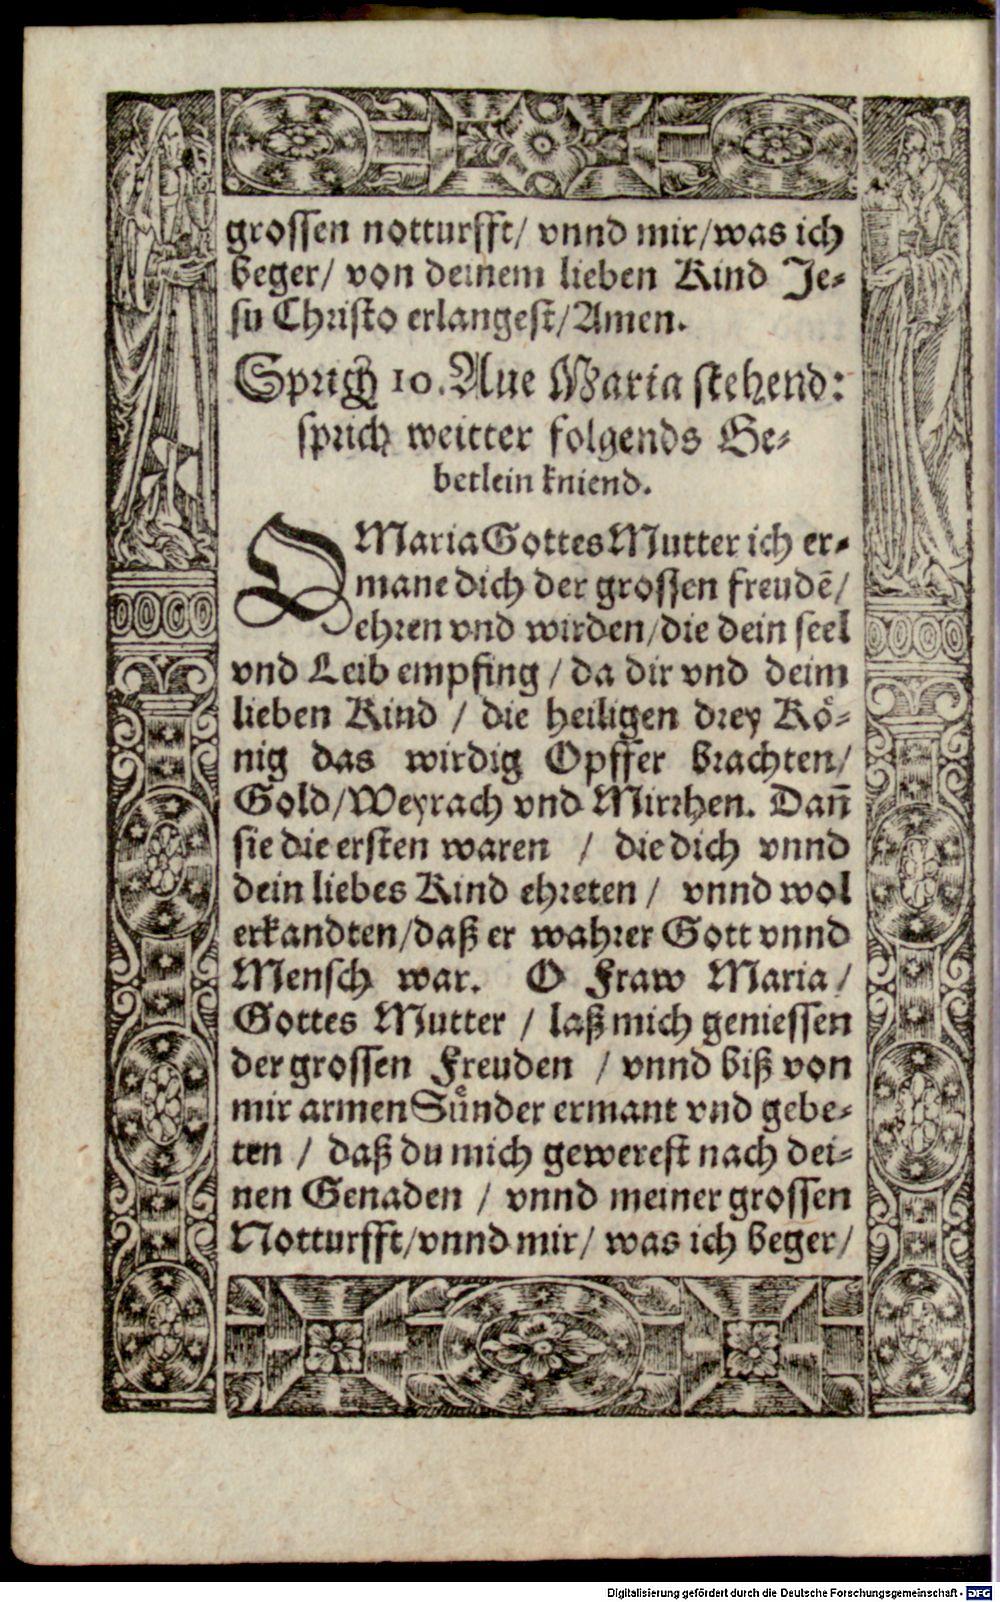 grossen notturfft/ vnnd mir/was ich
beger/ von deinem lieben Kind Je-
su Christo erlangest/Amen.
Sprich 10. Aue Maria stehend:
sprich weitter folgends Ge-
betlein kniend.
O Maria Gottes Mutter ich er-
mane dich der grossen freudē/
ehren vnd wirden/die dein seel
vnd Leib empfing / da dir vnd deim
lieben Kind / die heiligen drey Koͤ-
nig das wirdig Opffer brachten/
Gold/Weyrach vnd Mirrhen. Dañ
sie die ersten waren / die dich vnnd
dein liebes Kind ehreten / vnnd wol
erkandten/daß er wahrer Gott vnnd
Mensch war. O Fraw Maria/
Gottes Mutter / laß mich geniessen
der grossen Freuden / vnnd biß von
mir armen Suͤnder ermant vnd gebe-
ten / daß du mich gewerest nach dei-
nen Genaden / vnnd meiner grossen
Notturfft/vnnd mir/ was ich beger/
Digitalisierung gefördert durch die Deutsche Forschungsgemeinschaft - DFG